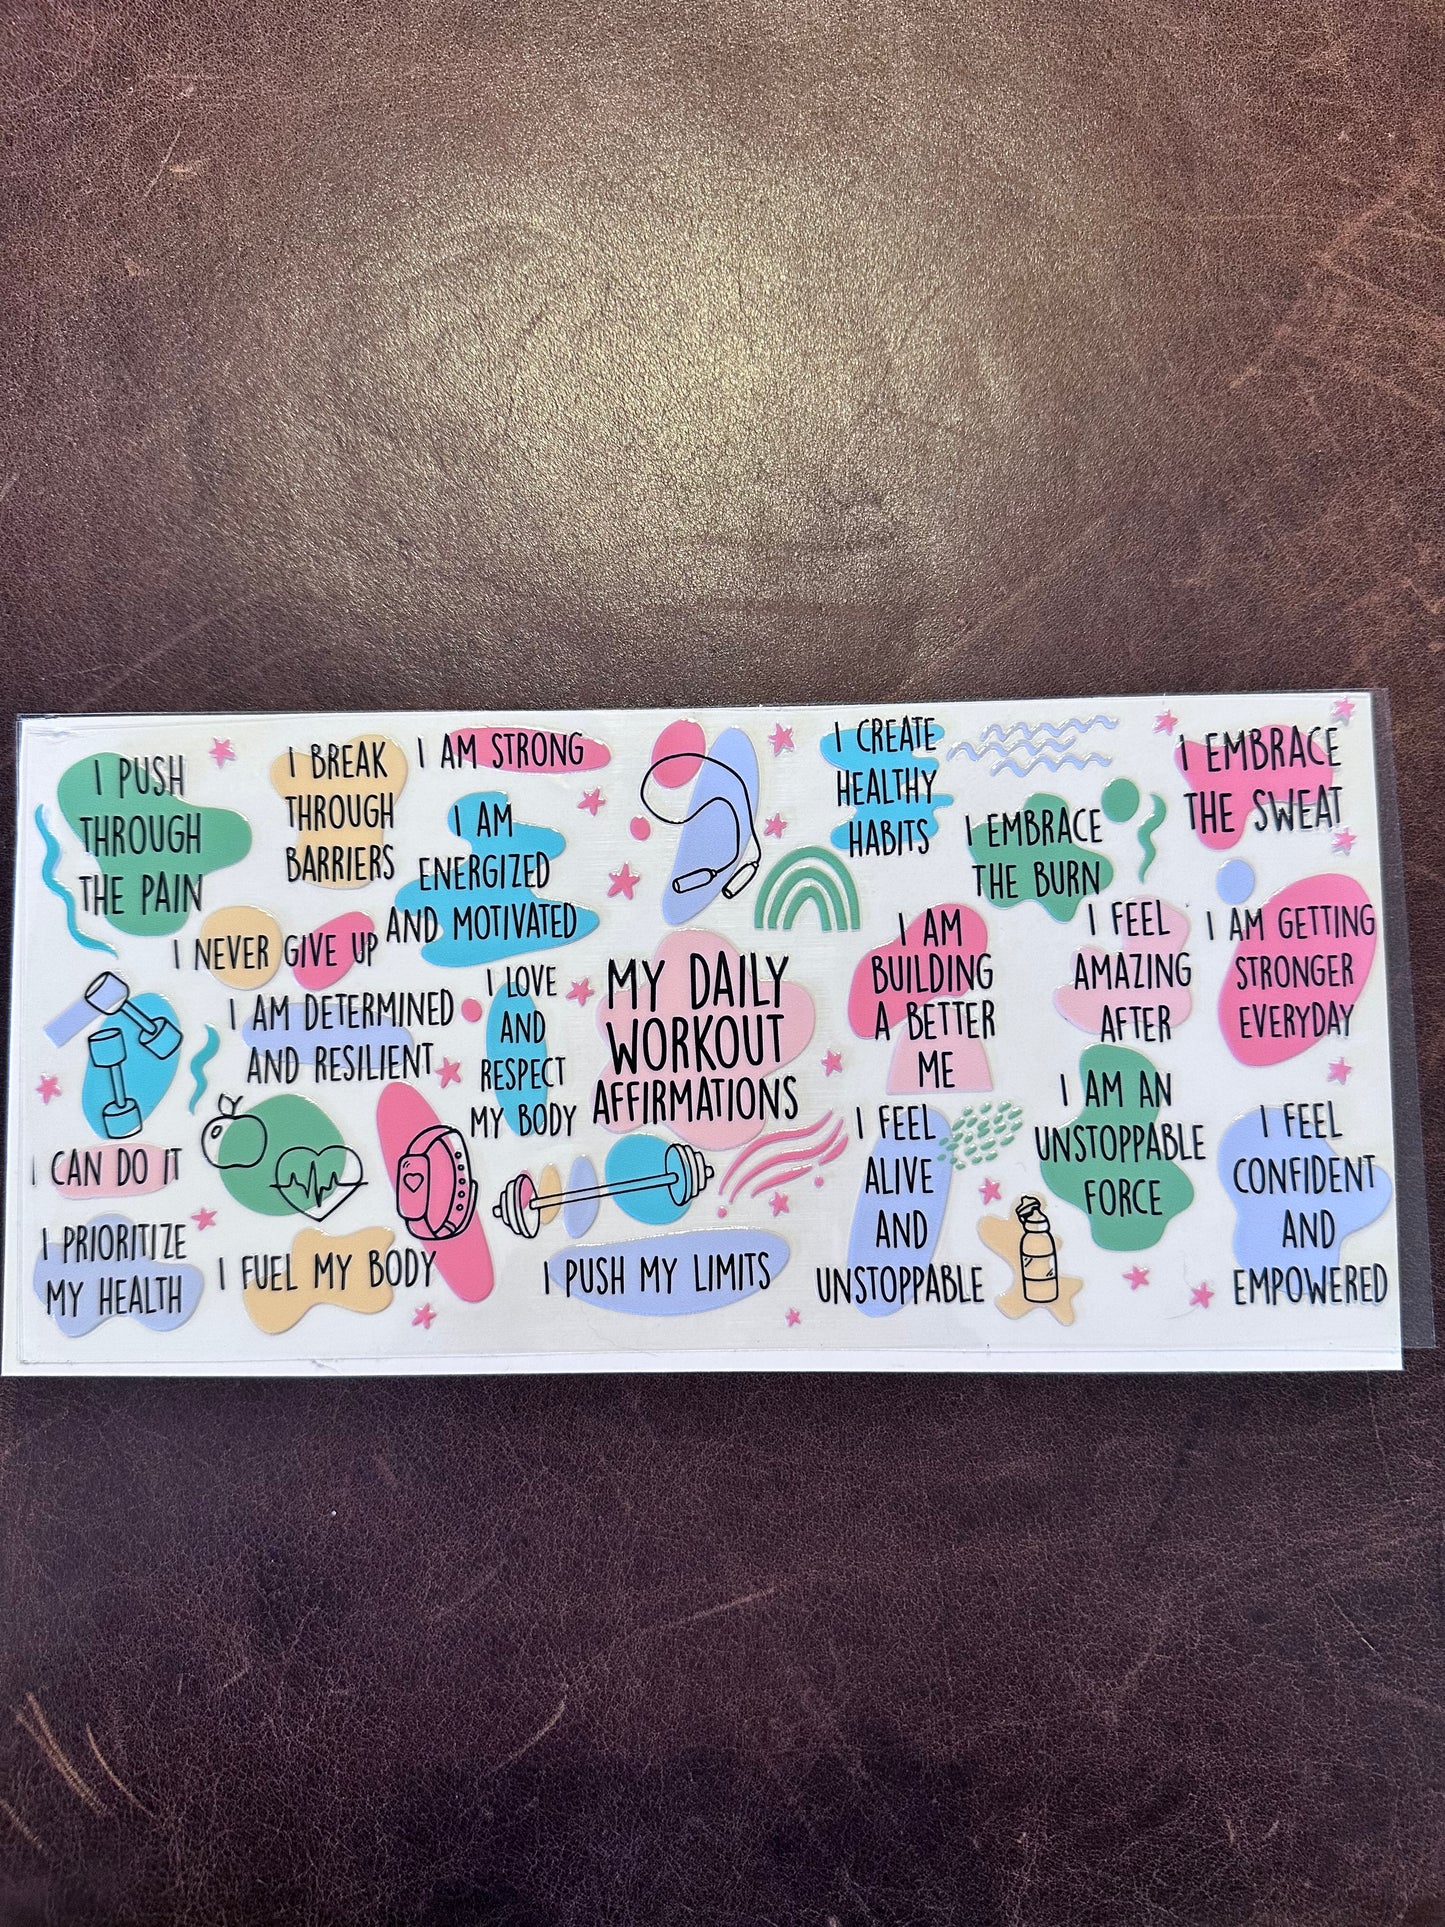 I PUSH
THROUGH
THE PAIN
I BREAK
THROUGH
BARRIERS
I AM STRONG
I AM
ENERGIZED
AND MOTIVATED
I NEVER GIVE UP
I AM DETERMINED
AND RESILIENT
I LOVE
AND
RESPECT
MY BODY
I CAN DO IT
I PRIORITIZE
MY HEALTH
I FUEL MY BODY
MY DAILY
WORKOUT
AFFIRMATIONS
I PUSH MY LIMITS
I CREATE
HEALTHY
HABITS
I EMBRACE
THE BURN
I EMBRACE
THE SWEAT
I AM
BUILDING
A BETTER
ME
I FEEL
AMAZING
AFTER
I AM GETTING
STRONGER
EVERYDAY
I FEEL
ALIVE
AND
UNSTOPPABLE
I AM AN
UNSTOPPABLE
FORCE
I FEEL
CONFIDENT
AND
EMPOWERED